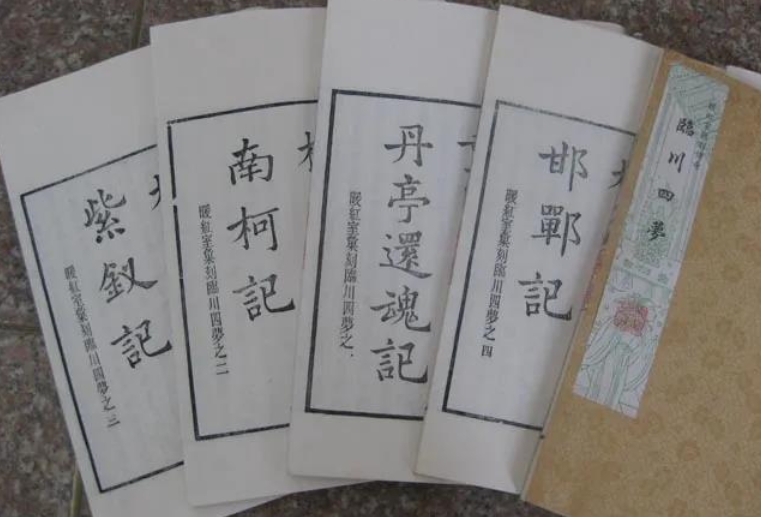 紫釵記
暖紅室彙刻臨川四夢之三
南柯記
暖紅室彙刻臨川四夢之二
丹亭還魂記
暖紅室彙刻臨川四夢之一
邯鄲記
暖紅室彙刻臨川四夢之四
臨川四夢